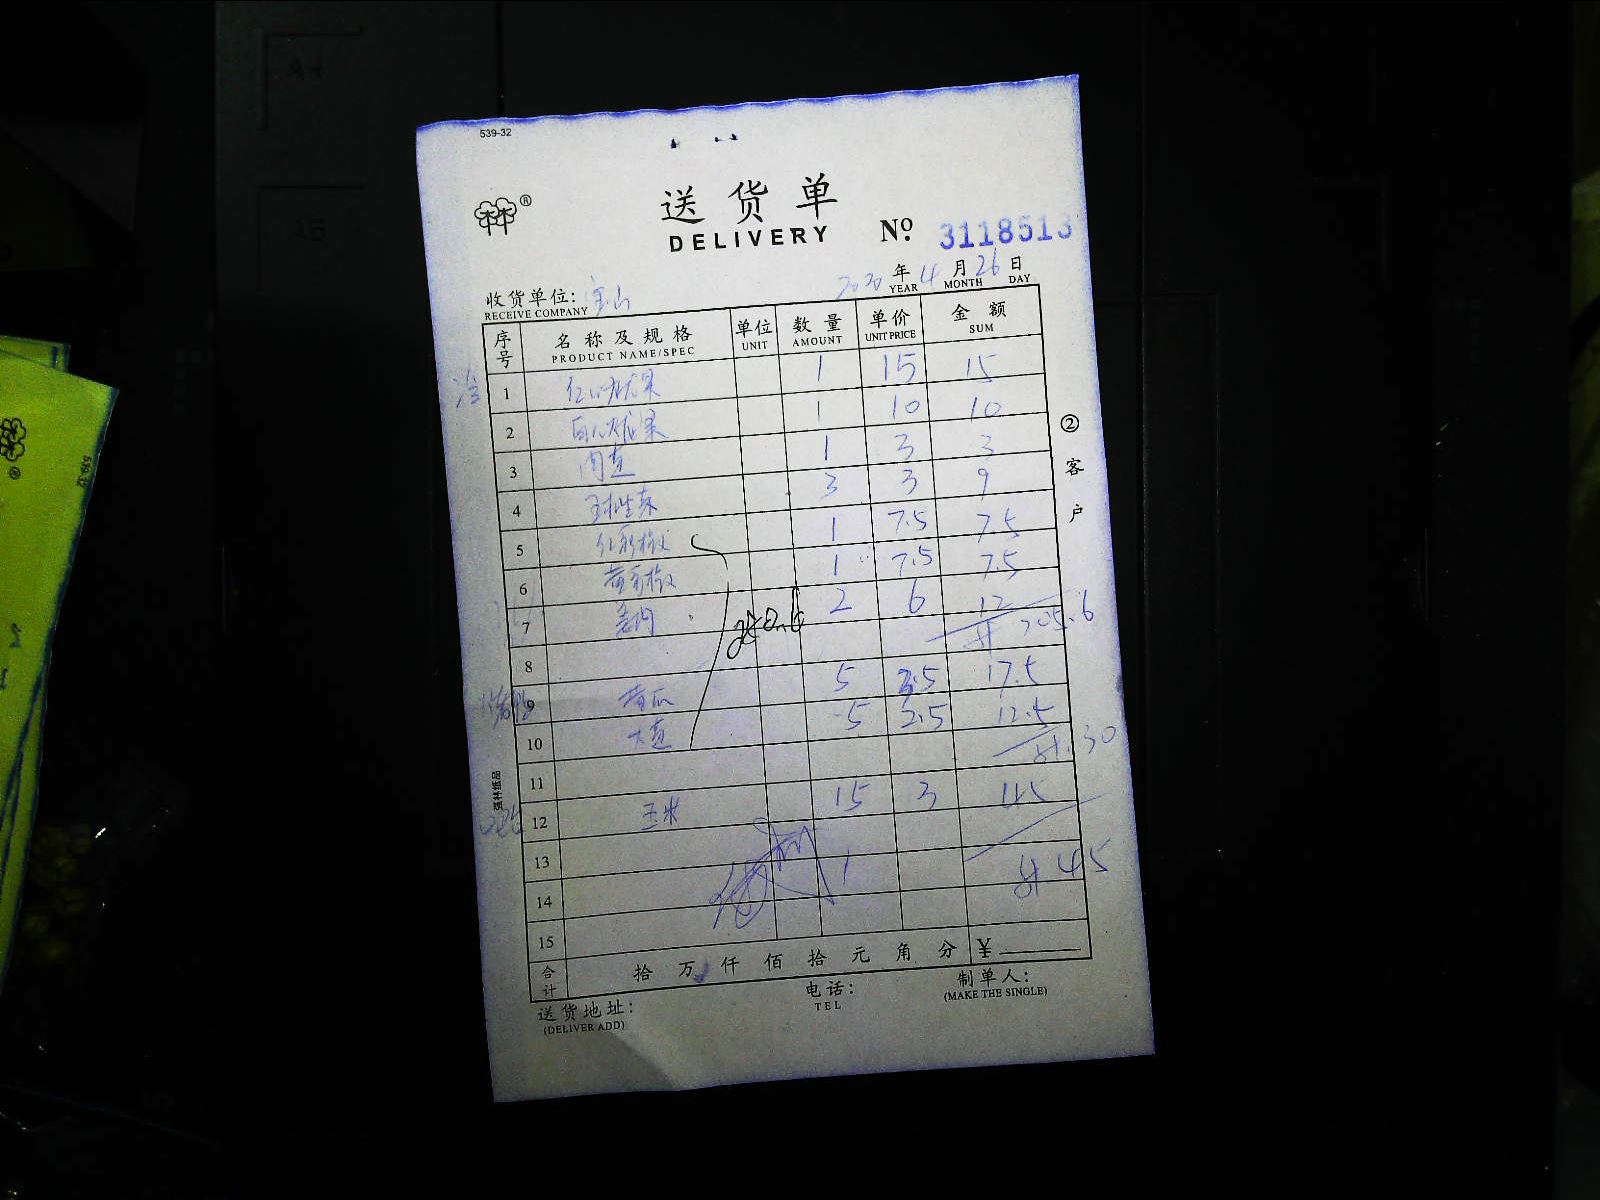 539-32
®
送货单
DELIVERY
Nº. 3118513
2020 年 4 月 26 日
YEAR MONTH DAY
收货单位: 宝山
RECEIVE COMPANY
序号 名称及规格 单位 数量 单价 金额
PRODUCT NAME/SPEC UNIT AMOUNT UNIT PRICE SUM
1 红心火龙果 1 15 15
2 白心火龙果 1 10 10
3 1 3 3
4 3 3 9
5 红彩椒 1 7.5 7.5
6 黄彩椒 1 7.5 7.5
7 2 6 12
8
9 黄瓜 5 3.5 17.5
10 5 2.5 12.5
30
11
12 玉米 15 3 45
13
45
14
15
合计 拾 万 仟 佰 拾 元 角 分 ¥
送货地址:
(DELIVER ADD)
电话:
TEL
制单人:
(MAKE THE SINGLE)
②客户
强林纸品
A4
A5
539-32
®